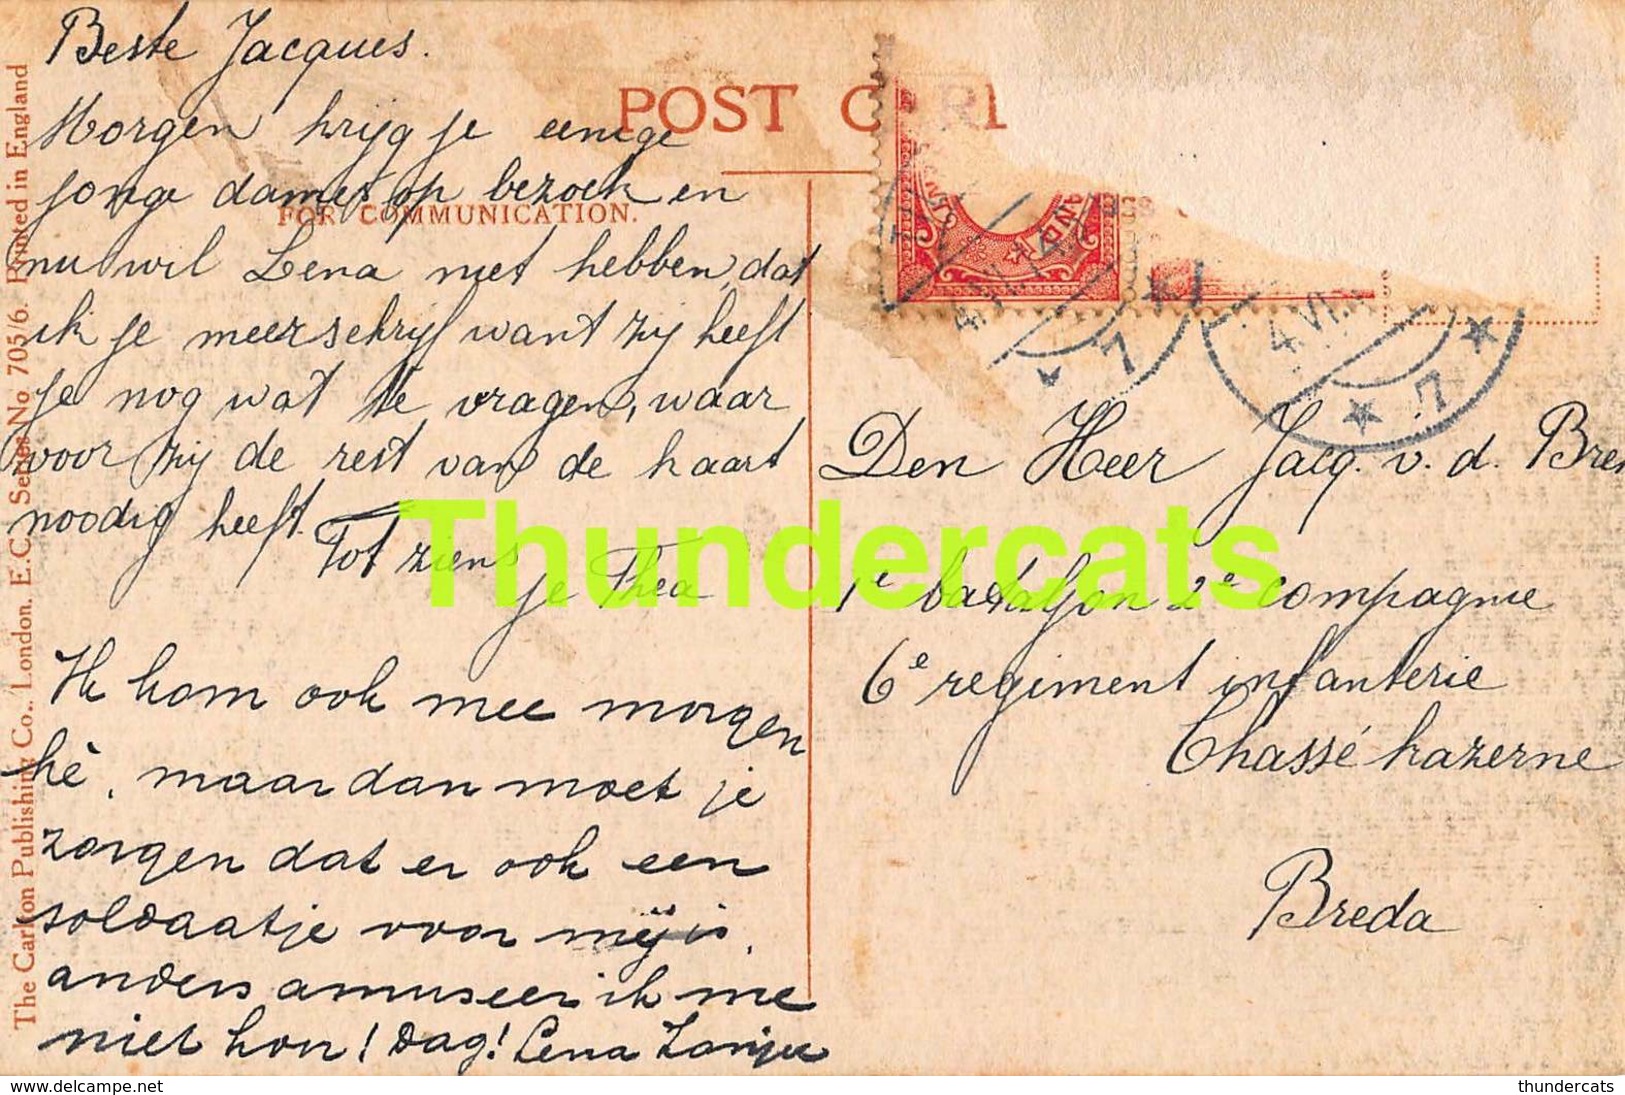 Beste Jacques.
Morgen krijg je eenige
jonge dames op bezoek en
nu wil Lena niet hebben, dat
ik je meer schrijf want zij heeft
je nog wat te vragen, waar
voor zij de rest van de kaart
noodig heeft. Tot ziens
je Thea
Ik kom ook mee morgen
hè, maar dan moet je
zorgen dat er ook een
soldaatje voor mij is,
anders amuseer ik me
niet hoor! Dag! Lena
POST
FOR COMMUNICATION.
The Carlton Publishing Co., London, E.C. Series No. 705/6. Printed in England
Den Heer Jacq. v. d.
1e bataljon 2e compagnie
6e regiment infanterie
Chassé kazerne
Breda
Thundercats
https://www.delcampe.net
thundercats